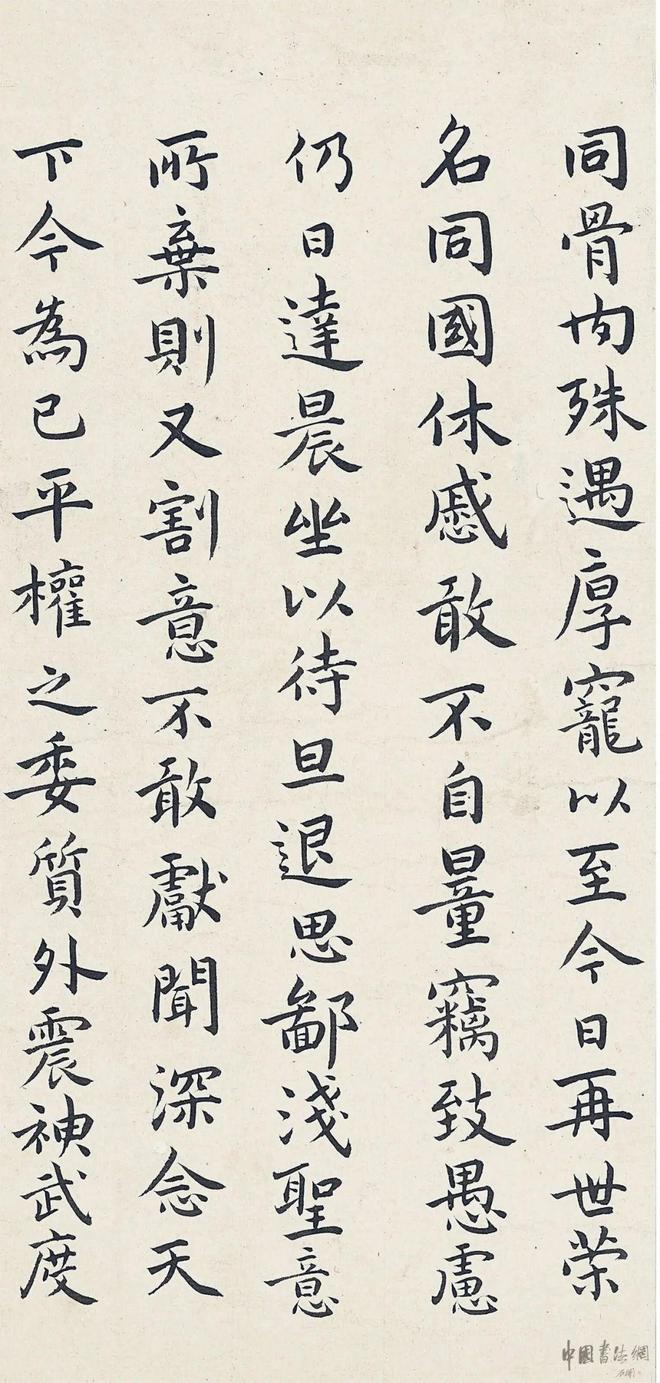 同骨肉殊遇厚寵以至今日再世荣
名同國休慼敢不自量竊致愚慮
仍日達晨坐以待旦退思鄙淺聖意
所棄則又割意不敢獻聞深念天
下今為已平權之委質外震神武度
中國書法網